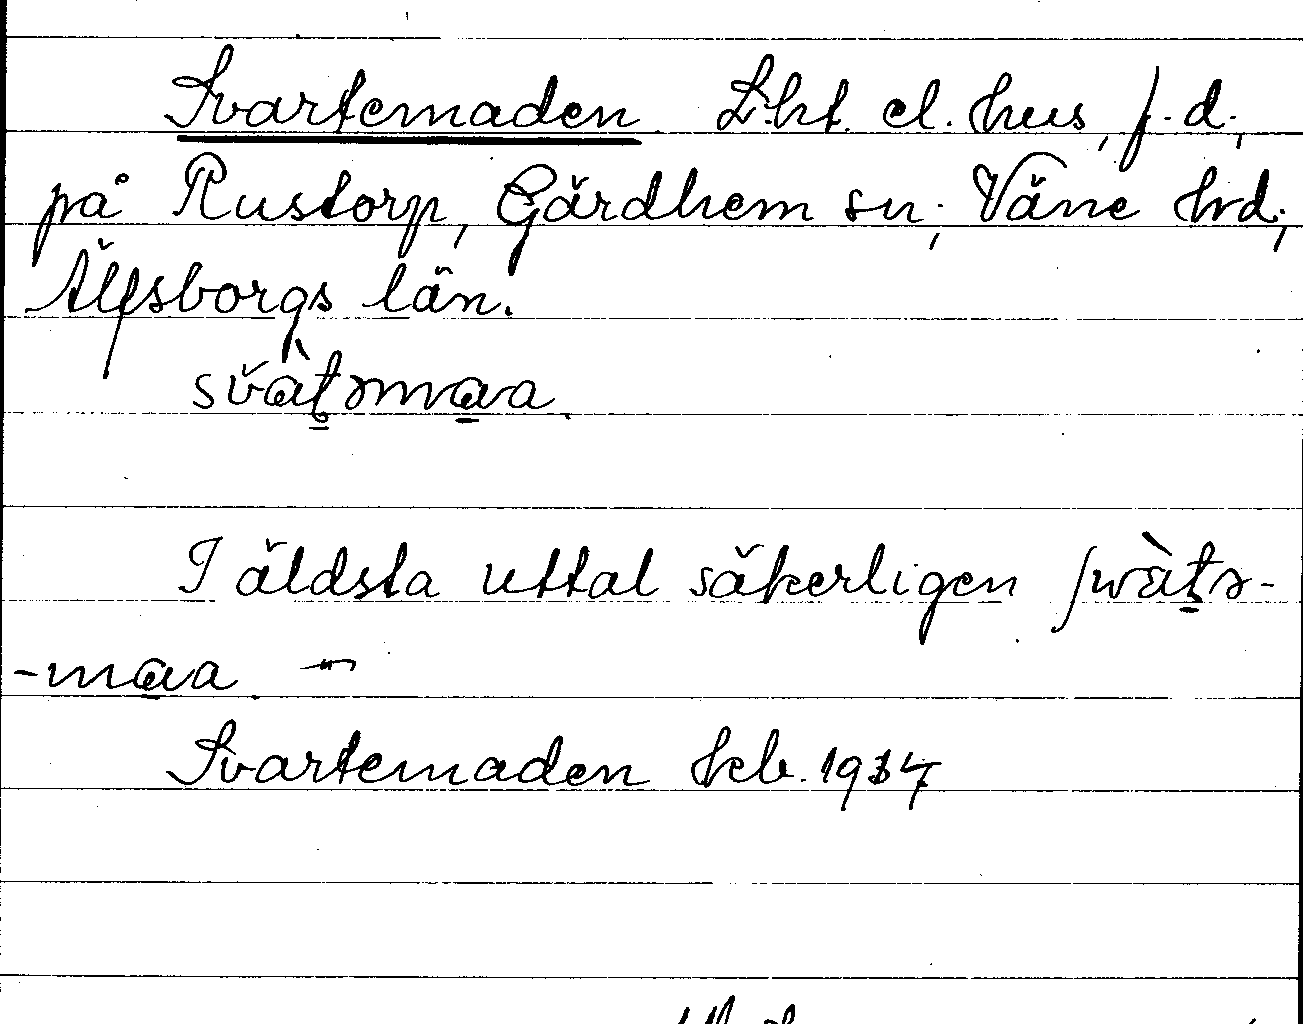 Svartemaden. Lht. el. hus, f. d.,
på Rustorp, Gärdhem sn; Väne hd;
Älfsborgs län.
svàt̠ɘma̠a.
I äldsta uttal säkerligen ſwàt̠ɘ-
-ma̠a. —
Svartemaden kb. 1934